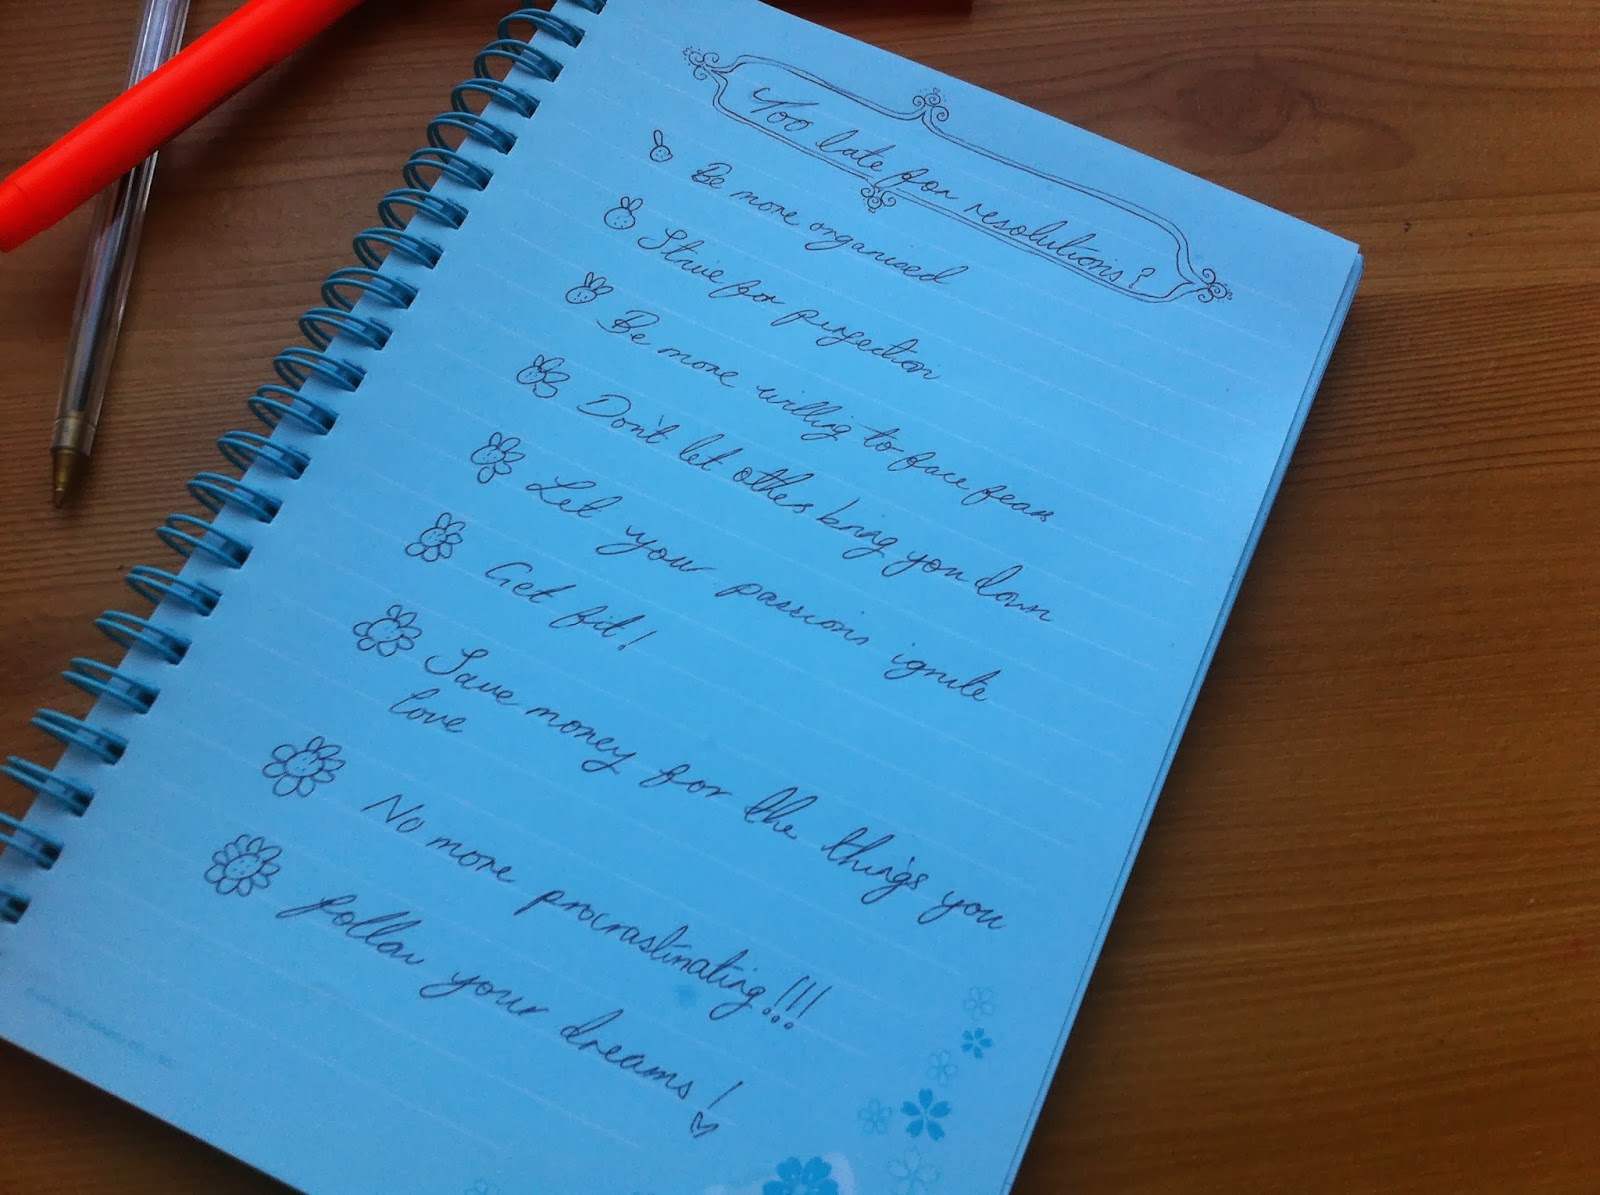 Too late for resolutions?
Be more organised
Strive for projection
Be more willing to face fears
Don't let others bring you down
Let your passions ignite
Get fit!
Save money for the things you
love
No more procrastinating!!!
Follow your dreams!